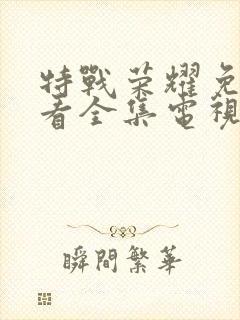 特戰荣耀免
看全集電視
瞬間繁華